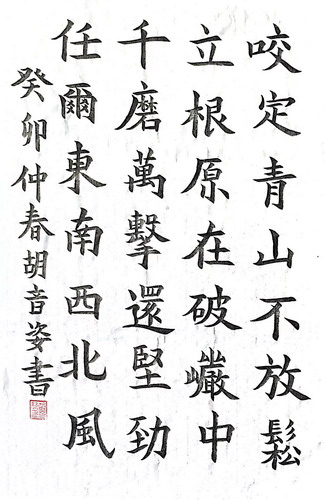 咬定青山不放鬆
立根原在破巖中
千磨萬擊還堅勁
任爾東南西北風
癸卯仲春胡音姿書